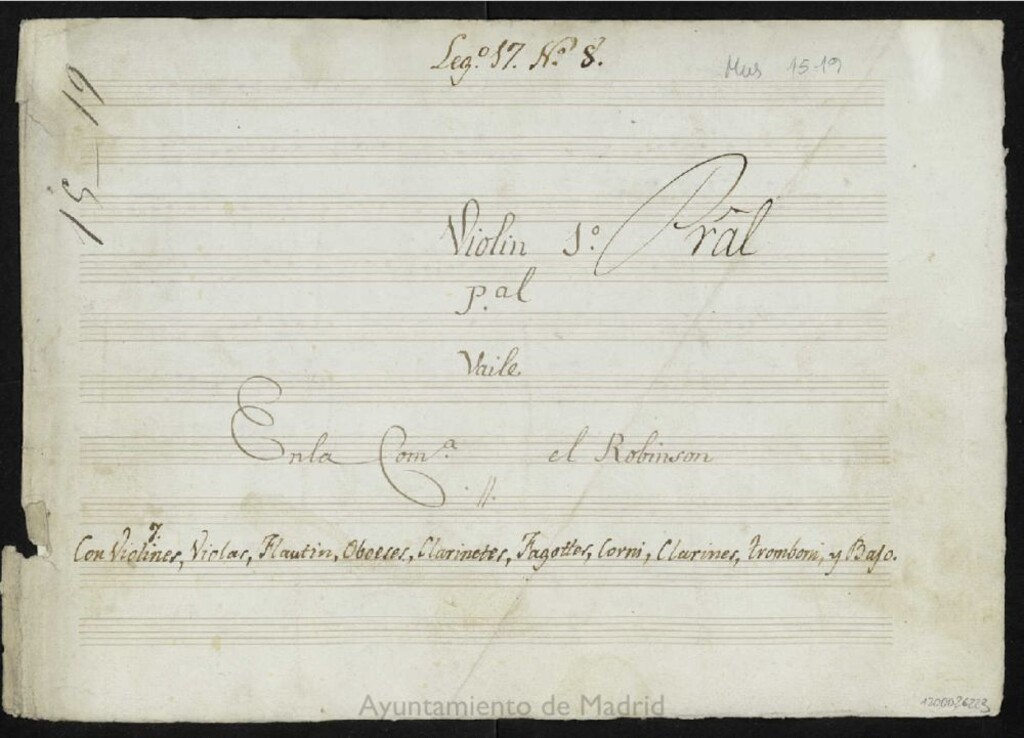 Leg.º 17. N.º 8.
Mus 15-19
15-19
Violin 1.º Prãl
p.al
Vaile
En la Com.ª el Robinson
7
Con Violines, Violas, Flautin, Oboeses, Clarinetes, Fagottes, Corni, Clarines, Tromboni, y Bajo.
Ayuntamiento de Madrid
1200026223